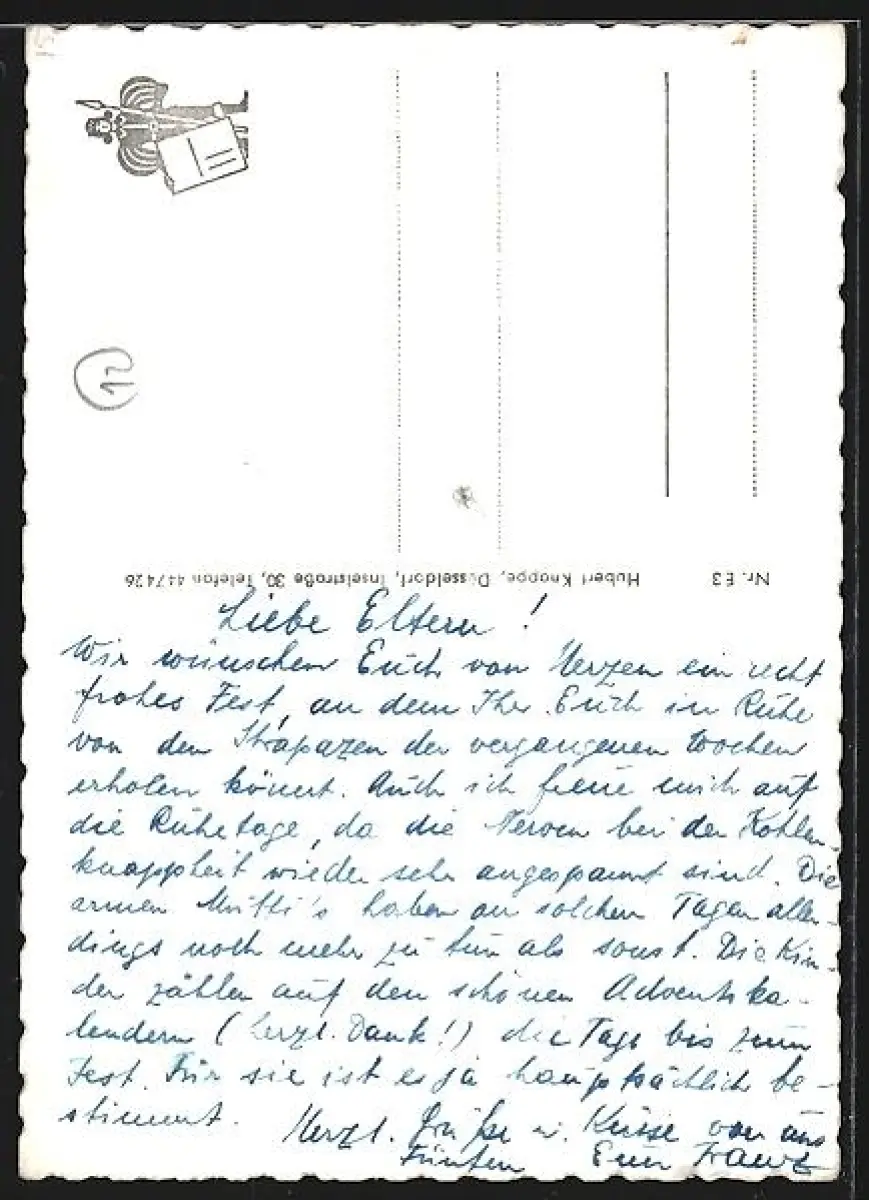 12
Nr. E3 Hubert Knoppe, Düsseldorf, Inselstraße 30, Telefon 447426
Liebe Eltern!
Wir wünschen Euch von Herzen ein recht
frohes Fest, an dem Ihr Euch in Ruhe
von den Strapazen der vergangenen Wochen
erholen könnt. Auch ich freue mich auf
die Ruhetage, da die Nerven bei der Kohlen-
knappheit wieder sehr angespannt sind. Die
armen Mutti's haben an solchen Tagen aller-
dings noch mehr zu tun als sonst. Die Kin-
der zählen auf den schönen Adventska-
lendern (herzl. Dank!) die Tage bis zum
Fest. Für sie ist es ja hauptsächlich be-
stimmt.
Herzl. Grüße u. Küsse von uns
Fünfen Euer Franz